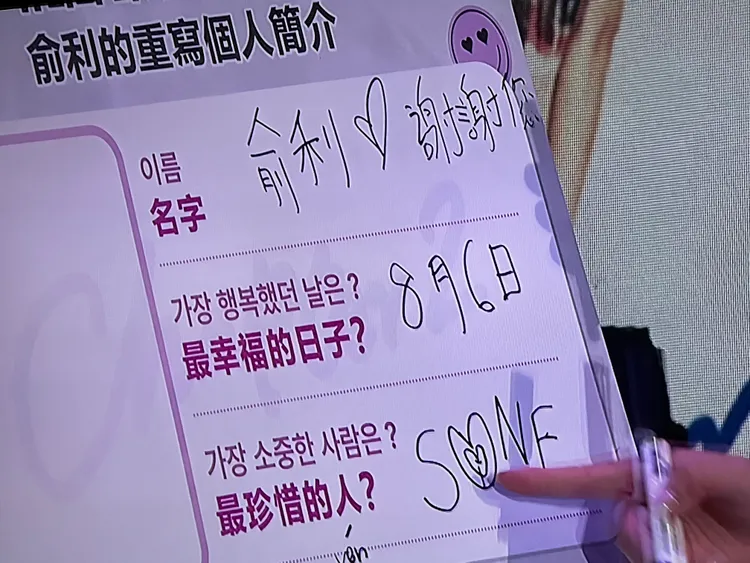 俞利的重寫個人簡介
이름
名字
俞利♡謝謝您
가장 행복했던 날은?
最幸福的日子?
8月6日
가장 소중한 사람은?
最珍惜的人?
SONE